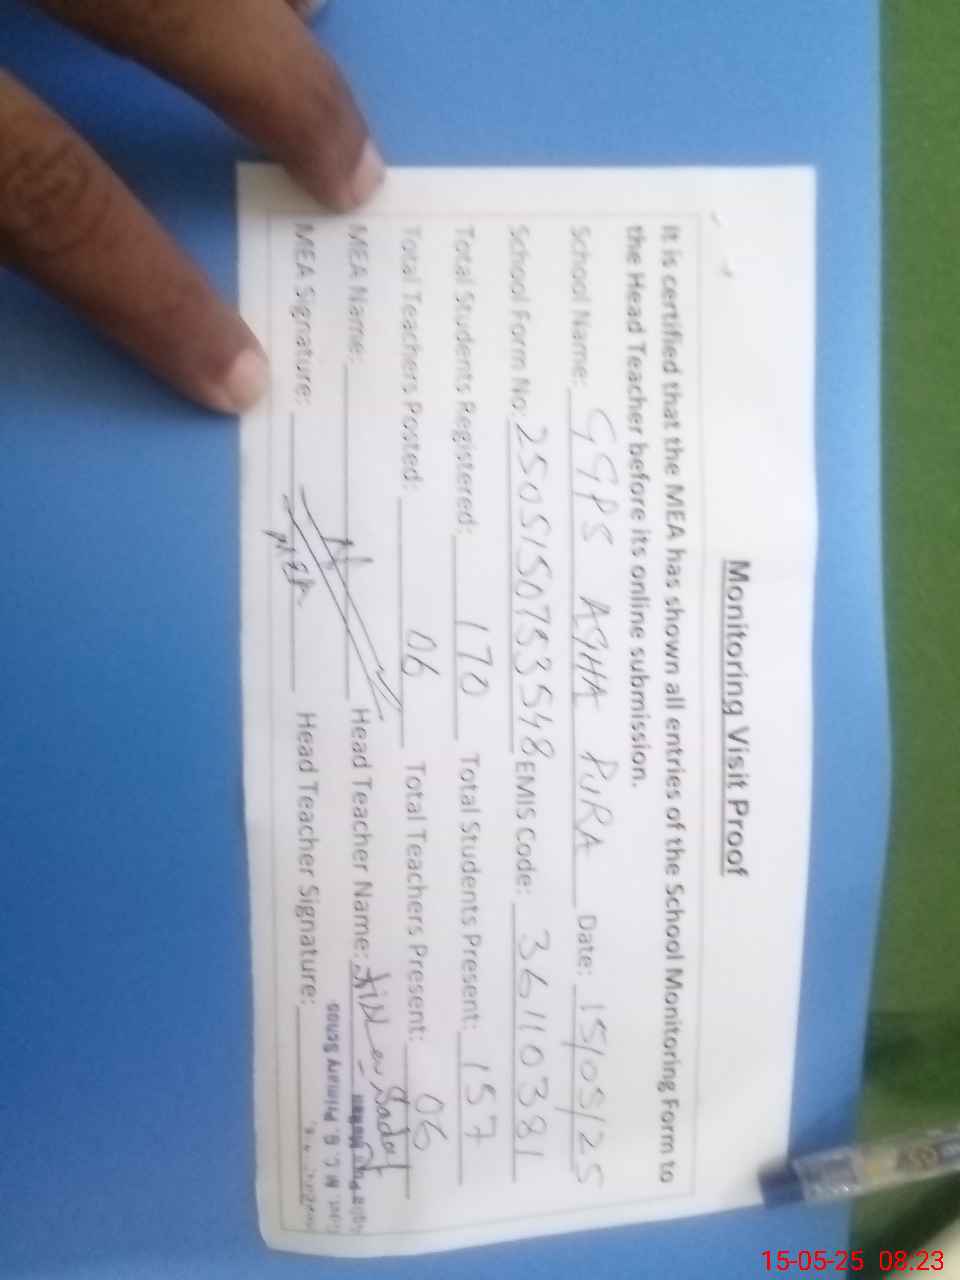 Monitoring Visit Proof
It is certified that the MEA has shown all entries of the School Monitoring Form to
the Head Teacher before its online submission.
School Name: GGPS AGHA PURA Date: 15/05/25
School Form No: 2505150753548 EMIS Code: 36110381
Total Students Registered: 170 Total Students Present: 157
Total Teachers Posted: 06 Total Teachers Present: 06
MEA Name: Head Teacher Name: Sadat
MEA Signature: MEA Head Teacher Signature:
G. Primary
15-05-25 08:23